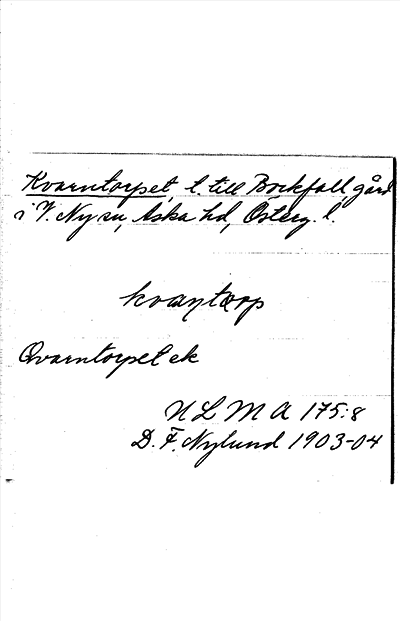 Kvarntorpet, l. till Bockfall, gård
i V. Ny sn, Aska hd, Österg. l.
kvaṇtærp
Qvarntorpet ek
ULMA 175:8
D. F. Nylund 1903-04